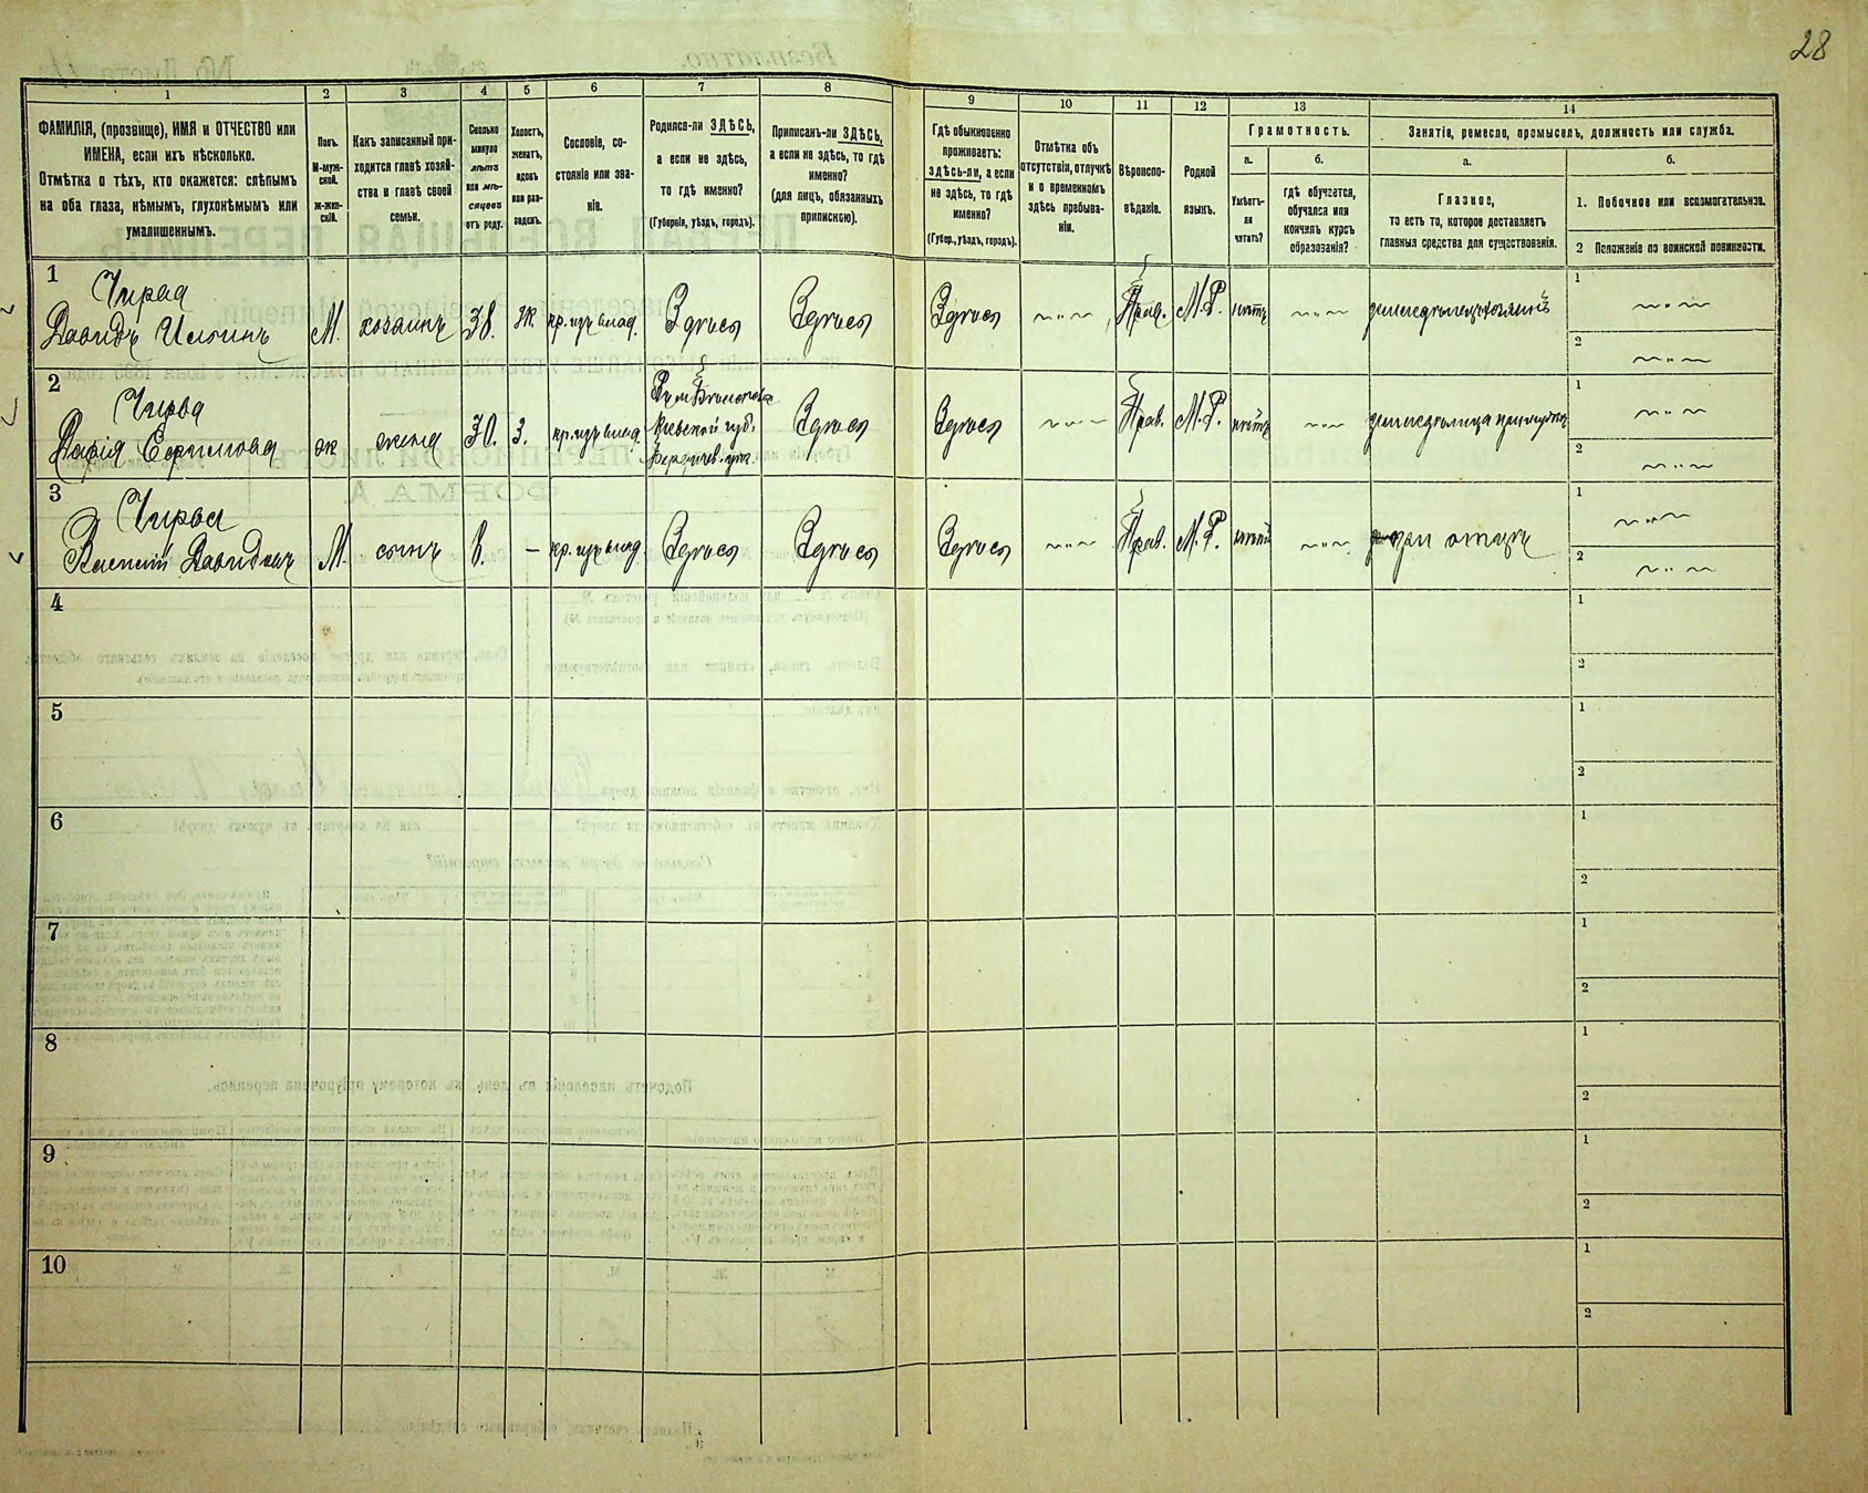 28
1
2
3
4
5
6
7
8
9
10
11
12
13
14
ФАМИЛІЯ, (прозвище), ИМЯ и ОТЧЕСТВО или
ИМЕНА, если ихъ нѣсколько.
Отмѣтка о тѣхъ, кто окажется: слѣпымъ
на оба глаза, нѣмымъ, глухонѣмымъ или
умалишеннымъ.
Полъ.
М-муж-
ской.
Ж-жен-
скій.
Какъ записанный при-
ходится главѣ хозяй-
ства и главѣ своей
семьи.
Сколько
минуло
лѣтъ
или мѣ-
сяцевъ
отъ роду.
Холостъ,
женатъ,
вдовъ
или раз-
веденъ.
Сословіе, со-
стояніе или зва-
ніе.
Родился-ли ЗДѢСЬ,
а если не здѣсь,
то гдѣ именно?
(Губернія, уѣздъ, городъ).
Приписанъ-ли ЗДѢСЬ,
а если не здѣсь, то гдѣ
именно?
(для лицъ, обязанныхъ
припискою).
Гдѣ обыкновенно
проживаетъ:
здѣсь-ли, а если
не здѣсь, то гдѣ
именно?
(Губер., уѣздъ, городъ).
Отмѣтка объ
отсутствіи, отлучкѣ
и о временномъ
здѣсь пребыва-
ніи.
Вѣроиспо-
вѣданіе.
Родной
языкъ.
Грамотность.
а.
Умѣетъ-
ли
читать?
б.
гдѣ обучается,
обучался или
кончилъ курсъ
образованія?
Занятіе, ремесло, промыселъ, должность или служба.
а.
Главное,
то есть то, которое доставляетъ
главныя средства для существованія.
б.
1. Побочное или вспомогательное.
2 Положеніе по воинской повинности.
1
Чирва
Давидъ Ильинъ
М.
хозяинъ
38.
ж.
кр. изъ влад.
Здѣсь
Здѣсь
Здѣсь
Прав.
М. Р.
нѣтъ
земледѣлецъ хозяинъ
1
2
2
Чирва
Марія
ж
жена
30.
З.
кр. изъ влад.
Кіевской губ.
Бердичев. уѣз.
Здѣсь
Здѣсь
Прав.
М. Р.
нѣтъ
земледѣлица при мужѣ
1
2
3
Чирва
Василій Давидовъ
М.
сынъ
8.
—
кр. изъ влад.
Здѣсь
Здѣсь
Здѣсь
Прав.
М. Р.
нѣтъ
при отцѣ
1
2
4
1
2
5
1
2
6
1
2
7
1
2
8
1
2
9
1
2
10
1
2